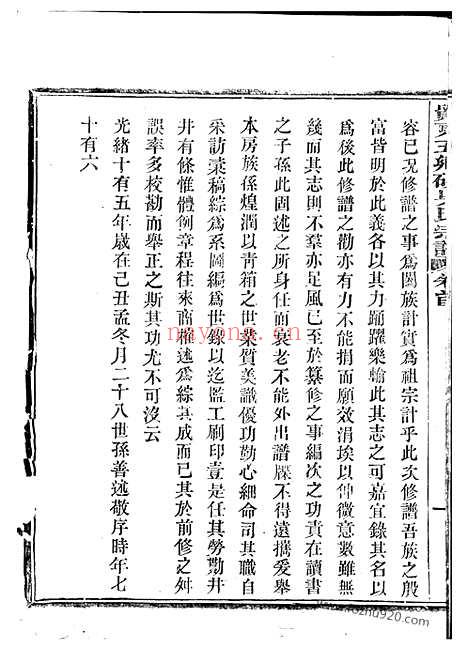 容已現修譜之事為闔族計實為祖宗計乎此次修譜吾族之殷
富皆明於此義各以其力踴躍樂輸此其志之可嘉宜錄其前
為後此修譜之勸亦有力不能捐而願效涓埃以伸微意數雖無
幾而其志則不羣亦足風已至於纂修之事編次之功責在讀書
之子孫此固述之所身任而衰老不能外出譜牒不得遠攜爰舉
本房族孫煌潤以青箱之世業質美識優功勤心細命司其職自
采訪彙稿綜為系圖編為世錄以迄監工刷印壹是任其勞勩井
井有條惟體例章程往來商榷述為綜其成而已其於前修之舛
誤率多校勘而舉正之斯其功尤不可沒云
光緒十有五年歲在己丑孟冬月二十八世孫善述敬序時年七
十有六
宗譜 卷首
一
nayona.cn
www.fozhu920.com